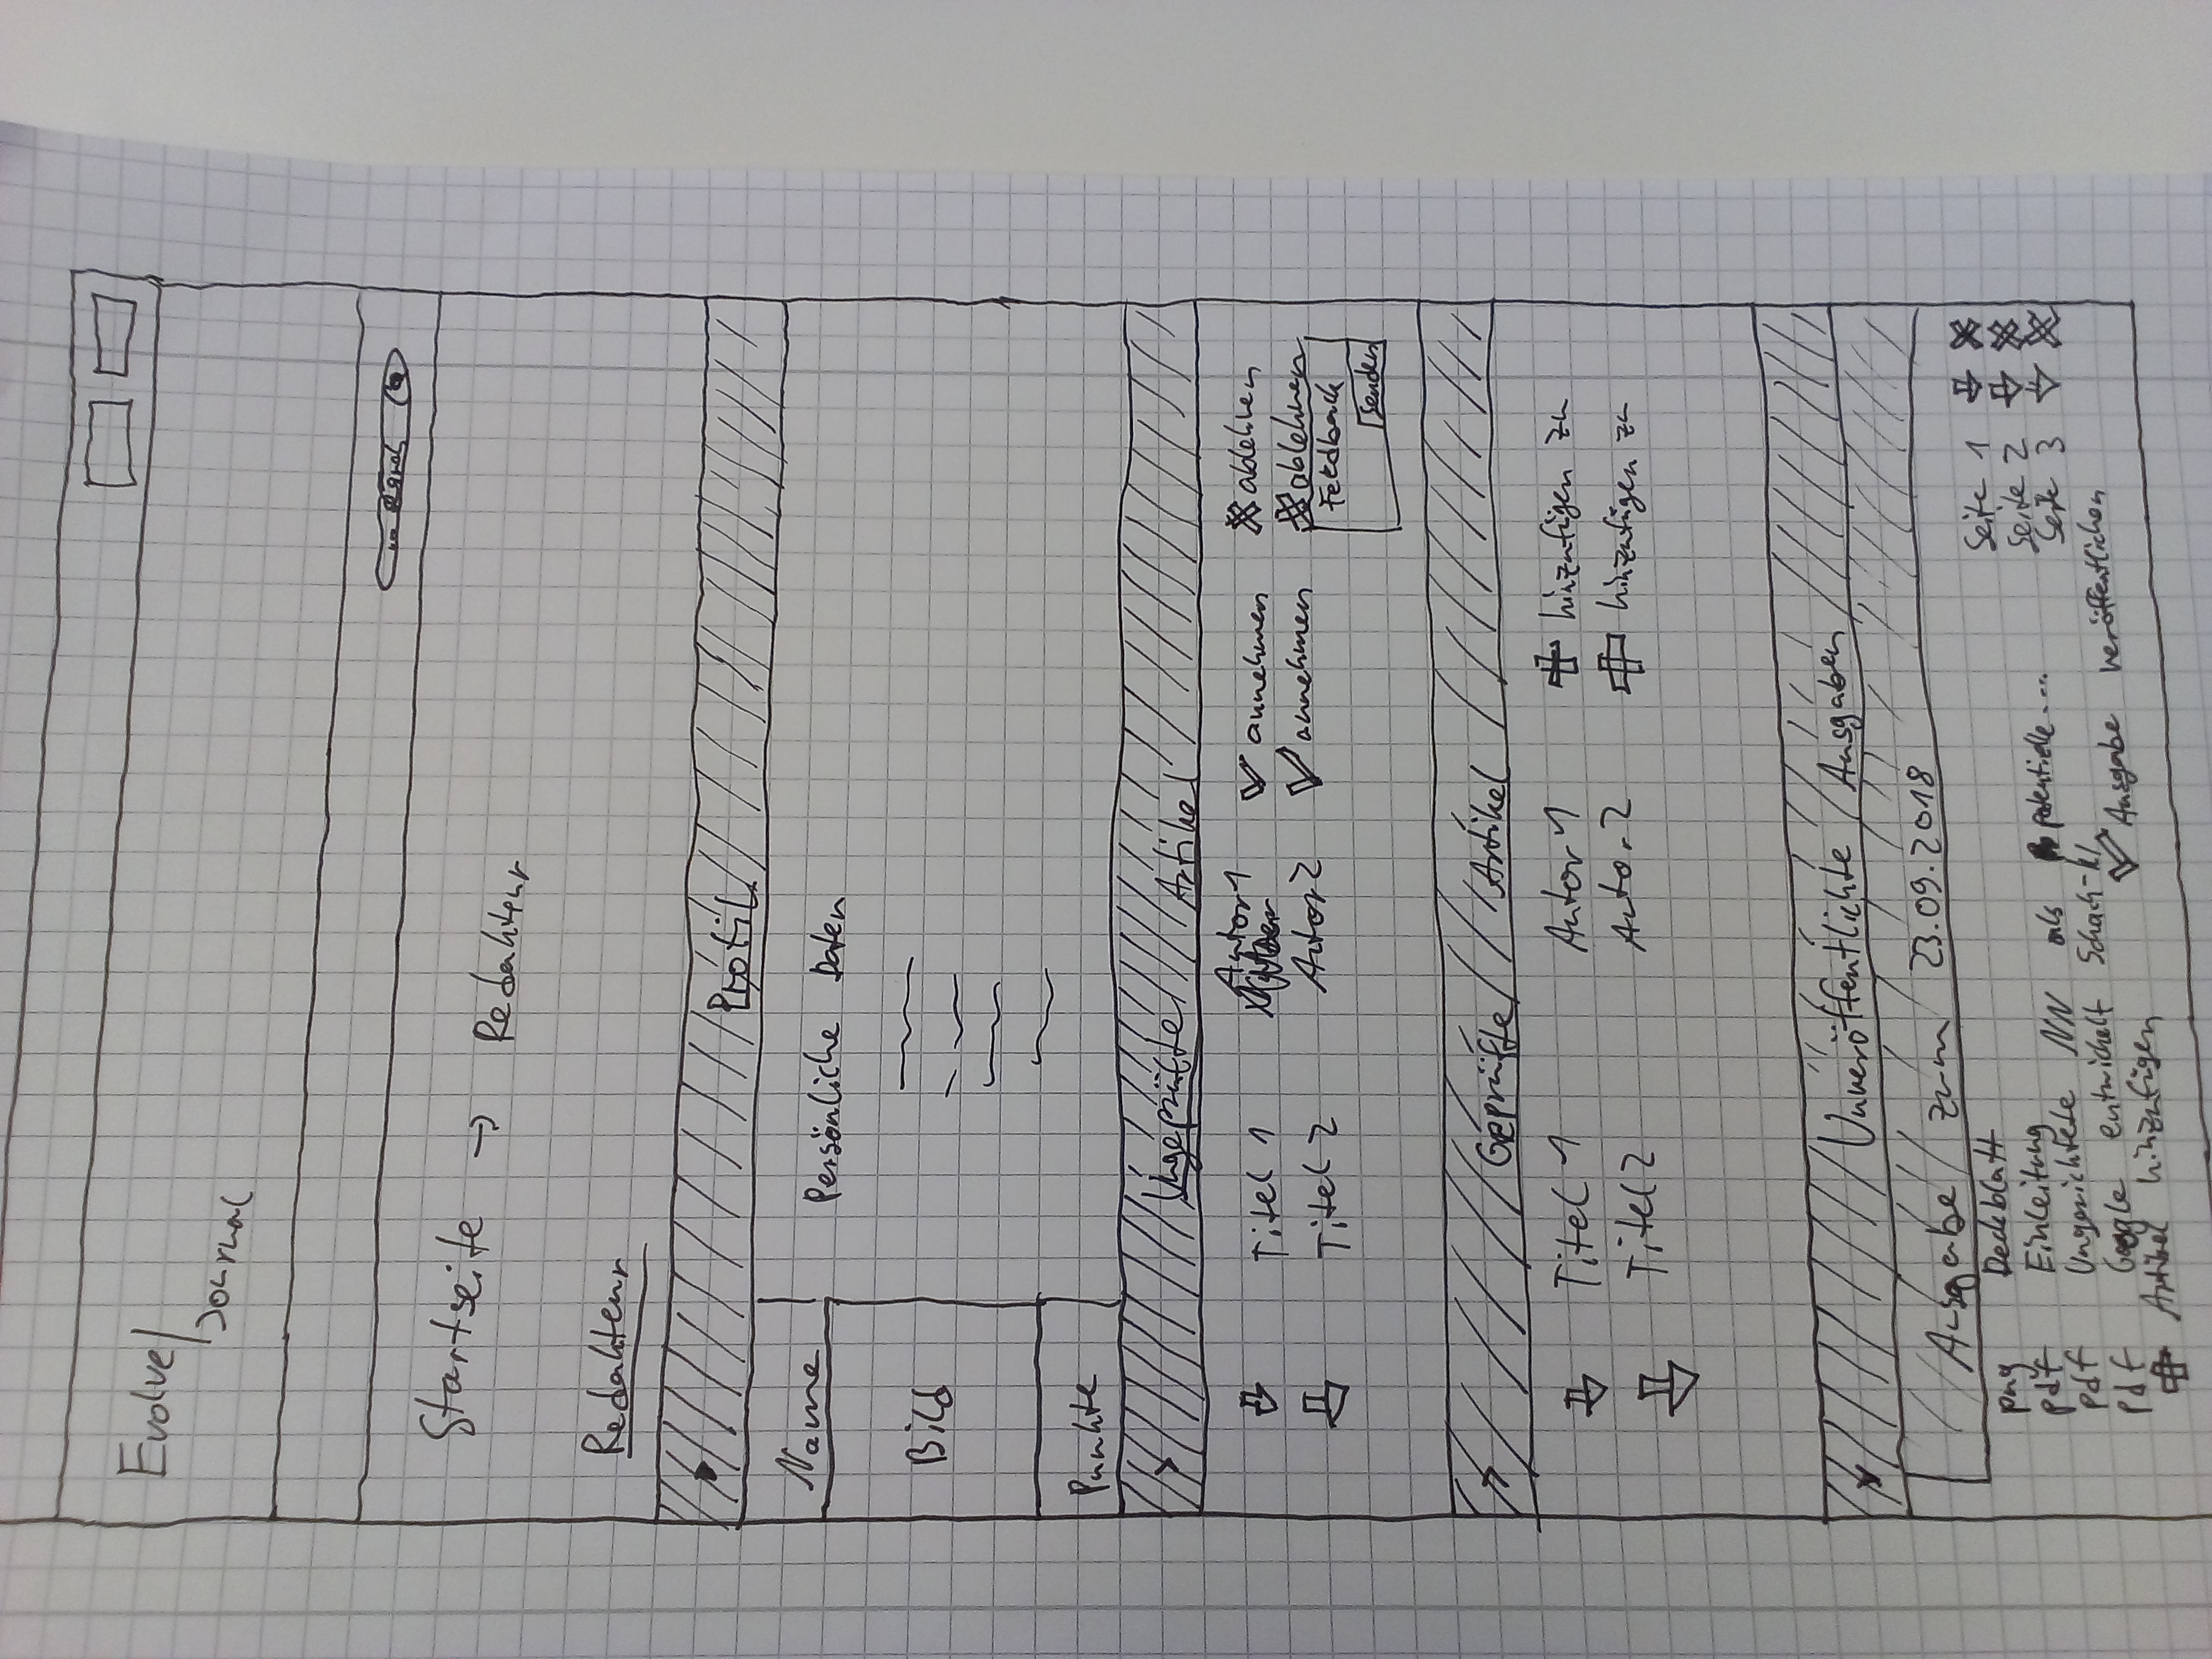 Evolve/
Journal
Startseite → Redakteur
Redakteur
Profil
Name
Persönliche Daten
Bild
Punkte
Ungeprüfte Artikel
Titel 1 Autor 1 annehmen ablehen
Titel 2 Autor 2 annehmen ablehnen
Feedback
Senden
Geprüfte Artikel
Titel 1 Autor 1 hinzufügen zu
Titel 2 Autor 2 hinzufügen zu
Unveröffentlichte Ausgaben
Ausgabe zum 23.09.2018
png Deckblatt
pdf Einleitung Seite 1
pdf Ungerichtete NN als potentielle.... Seite 2
pdf Google entwickelt Schach-KI Seite 3
Artikel hinzufügen Ausgabe veröffentlichen